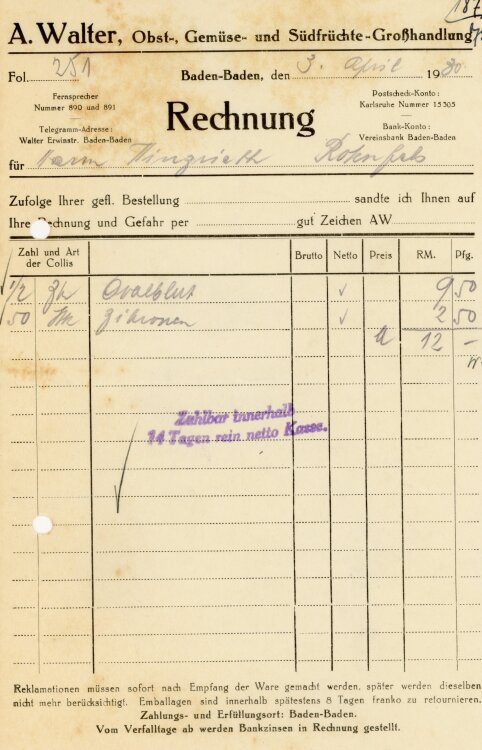 187
A. Walter, Obst-, Gemüse- und Südfrüchte-Großhandlung
Fol. 251 Baden-Baden, den 3. April 1930
Fernsprecher
Nummer 890 und 891
Telegramm-Adresse:
Walter Erwinstr. Baden-Baden
Rechnung
Postscheck-Konto:
Karlsruhe Nummer 15305
Bank-Konto:
Vereinsbank Baden-Baden
für Herrn Rotenfels
Zufolge Ihrer gefl. Bestellung sandte ich Ihnen auf
Ihre Rechnung und Gefahr per gut Zeichen AW.
Zahl und Art der Collis Brutto Netto Preis RM. Pfg.
1/2 Ovalblut 9 50
50 Stk Zitronen 2 50
12 -
Zahlbar innerhalb
14 Tagen rein netto Kasse.
Reklamationen müssen sofort nach Empfang der Ware gemacht werden, später werden dieselben
nicht mehr berücksichtigt. Emballagen sind innerhalb spätestens 8 Tagen franko zu retournieren.
Zahlungs- und Erfüllungsort: Baden-Baden.
Vom Verfalltage ab werden Bankzinsen in Rechnung gestellt.